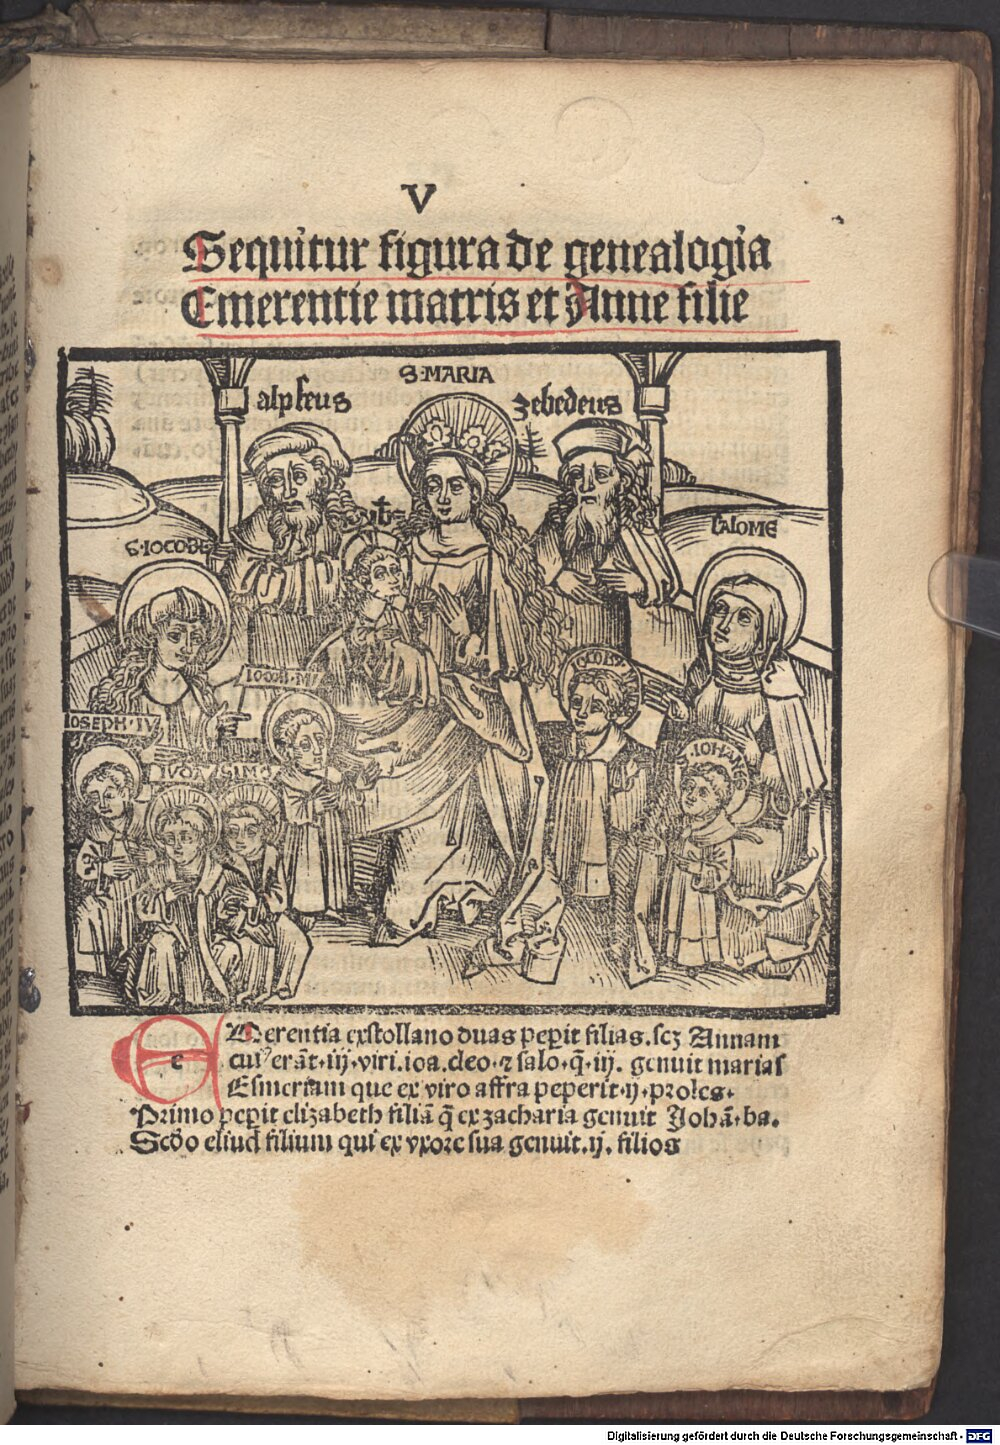 V
Sequitur figura de genealogia
Emerentie matris et Anne filie
S·MARIA
alpheus
zebedeus
SALOME
S·IOCOB
IOCOB·MI
IOCOB
IOSEPH·IV
IVDA SIMO
S·IOHANE
e
EMerentia exstollano duas peꝑit filias.scꝫ Annam
cuiꝰ erāt·iij·viri.ioa.cleo·⁊ salo·q̄·iij. genuit marias
Esmeriam que ex viro affra peperit·ij·proles·
Primo peꝑit elizabeth filiā q̄ ex zacharia genuit Johā·ba.
Scd̓o eliud filium qui ex vxore sua genuit.ij. filios
Digitalisierung gefördert durch die Deutsche Forschungsgemeinschaft - DFG